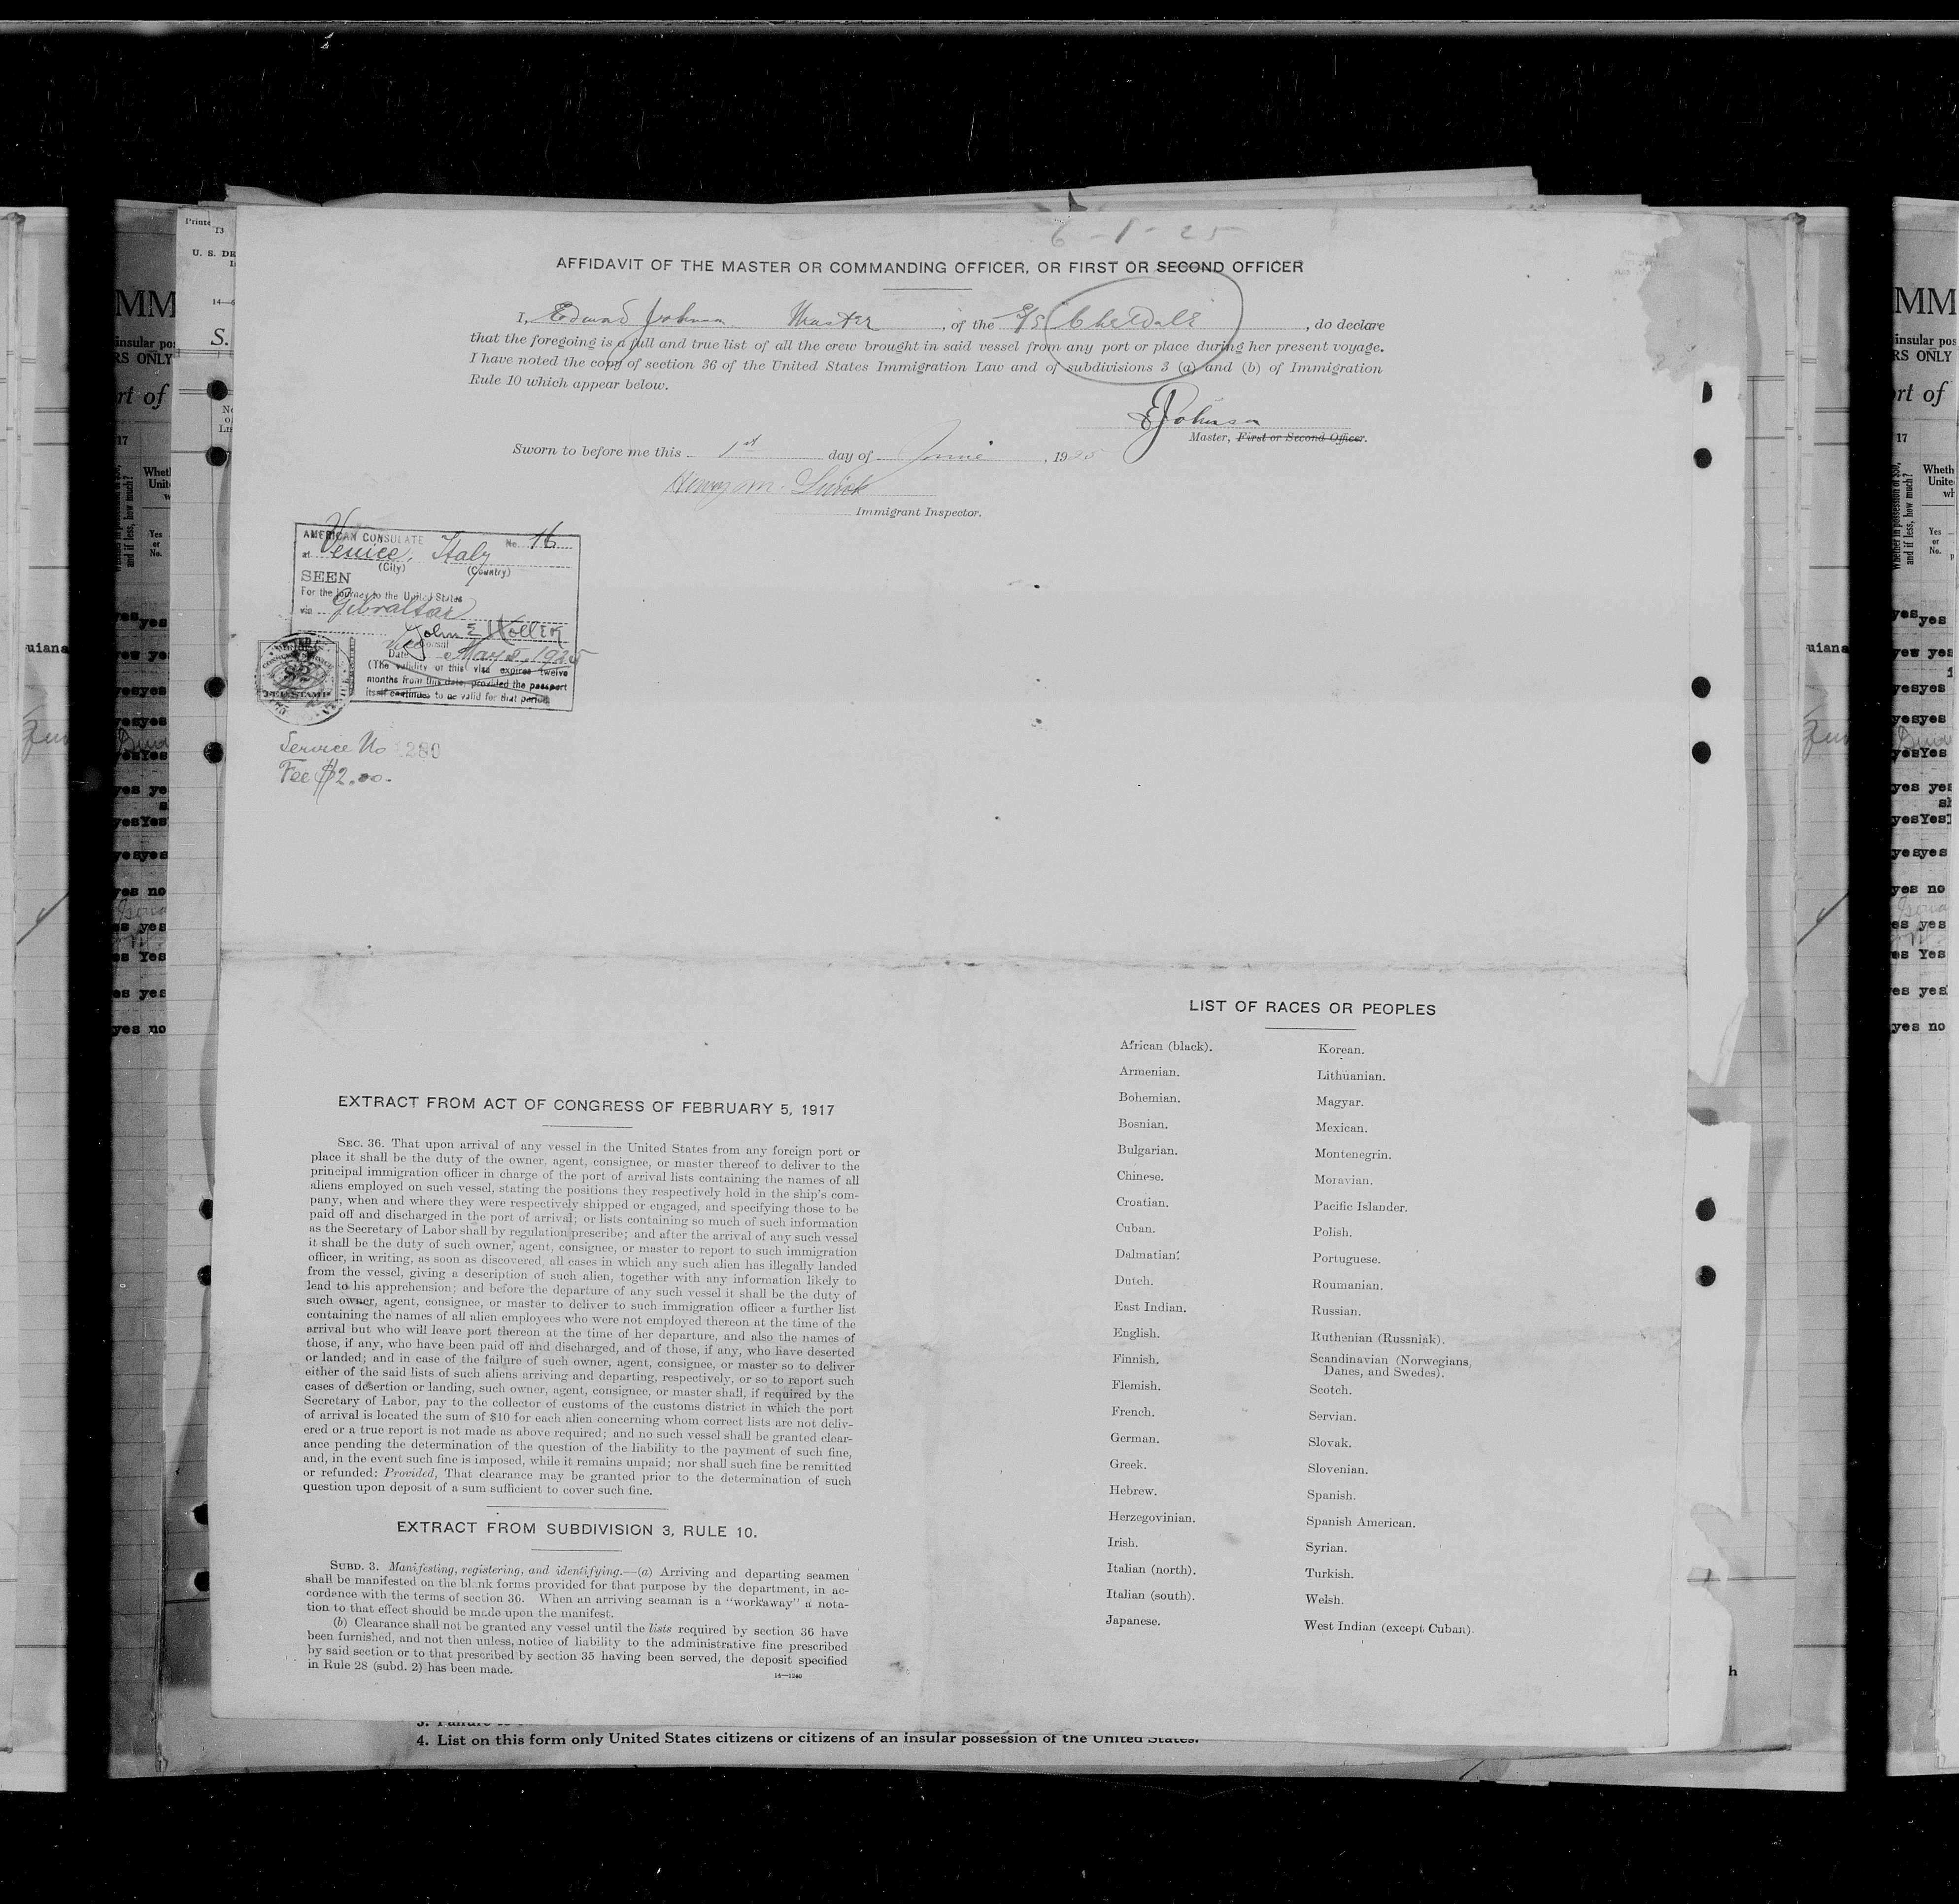 6-1-25
AFFIDAVIT OF THE MASTER OR COMMANDING OFFICER, OR FIRST OR SECOND OFFICER
I, Edward Johnson Master, of the S/S Cheldale, do declare
that the foregoing is a full and true list of all the crew brought in said vessel from any port or place during her present voyage.
I have noted the copy of section 36 of the United States Immigration Law and of subdivisions 3 (a) and (b) of Immigration
Rule 10 which appear below.
E Johnson
Master, First or Second Officer.
Sworn to before me this 1st day of June, 1925
Henry M.
Immigrant Inspector.
AMERICAN CONSULATE No. 16
at Venice, Italy
(City) (Country)
SEEN
For the journey to the United States
via Gibraltar
John E Holler
Vice Consul
Date May 8, 1925
(The validity of this visa expires twelve
months from this date, provided the passport
itself continues to be valid for that period)
Service No 1280
Fee $2.00.
EXTRACT FROM ACT OF CONGRESS OF FEBRUARY 5, 1917
SEC. 36. That upon arrival of any vessel in the United States from any foreign port or
place it shall be the duty of the owner, agent, consignee, or master thereof to deliver to the
principal immigration officer in charge of the port of arrival lists containing the names of all
aliens employed on such vessel, stating the positions they respectively hold in the ship's com-
pany, when and where they were respectively shipped or engaged, and specifying those to be
paid off and discharged in the port of arrival; or lists containing so much of such information
as the Secretary of Labor shall by regulation prescribe; and after the arrival of any such vessel
it shall be the duty of such owner, agent, consignee, or master to report to such immigration
officer, in writing, as soon as discovered, all cases in which any such alien has illegally landed
from the vessel, giving a description of such alien, together with any information likely to
lead to his apprehension; and before the departure of any such vessel it shall be the duty of
such owner, agent, consignee, or master to deliver to such immigration officer a further list
containing the names of all alien employees who were not employed thereon at the time of the
arrival but who will leave port thereon at the time of her departure, and also the names of
those, if any, who have been paid off and discharged, and of those, if any, who have deserted
or landed; and in case of the failure of such owner, agent, consignee, or master so to deliver
either of the said lists of such aliens arriving and departing, respectively, or so to report such
cases of desertion or landing, such owner, agent, consignee, or master shall, if required by the
Secretary of Labor, pay to the collector of customs of the customs district in which the port
of arrival is located the sum of $10 for each alien concerning whom correct lists are not deliv-
ered or a true report is not made as above required; and no such vessel shall be granted clear-
ance pending the determination of the question of the liability to the payment of such fine,
and, in the event such fine is imposed, while it remains unpaid; nor shall such fine be remitted
or refunded: Provided, That clearance may be granted prior to the determination of such
question upon deposit of a sum sufficient to cover such fine.
EXTRACT FROM SUBDIVISION 3, RULE 10.
SUBD. 3. Manifesting, registering, and identifying.—(a) Arriving and departing seamen
shall be manifested on the blank forms provided for that purpose by the department, in ac-
cordence with the terms of section 36. When an arriving seaman is a "workaway" a nota-
tion to that effect should be made upon the manifest.
(b) Clearance shall not be granted any vessel until the lists required by section 36 have
been furnished, and not then unless, notice of liability to the administrative fine prescribed
by said section or to that prescribed by section 35 having been served, the deposit specified
in Rule 28 (subd. 2) has been made.
14—1240
LIST OF RACES OR PEOPLES
African (black).
Armenian.
Bohemian.
Bosnian.
Bulgarian.
Chinese.
Croatian.
Cuban.
Dalmatian.
Dutch.
East Indian.
English.
Finnish.
Flemish.
French.
German.
Greek.
Hebrew.
Herzegovinian.
Irish.
Italian (north).
Italian (south).
Japanese.
Korean.
Lithuanian.
Magyar.
Mexican.
Montenegrin.
Moravian.
Pacific Islander.
Polish.
Portuguese.
Roumanian.
Russian.
Ruthenian (Russniak).
Scandinavian (Norwegians,
Danes, and Swedes).
Scotch.
Servian.
Slovak.
Slovenian.
Spanish.
Spanish American.
Syrian.
Turkish.
Welsh.
West Indian (except Cuban).
4. List on this form only United States citizens or citizens of an insular possession of the United States.